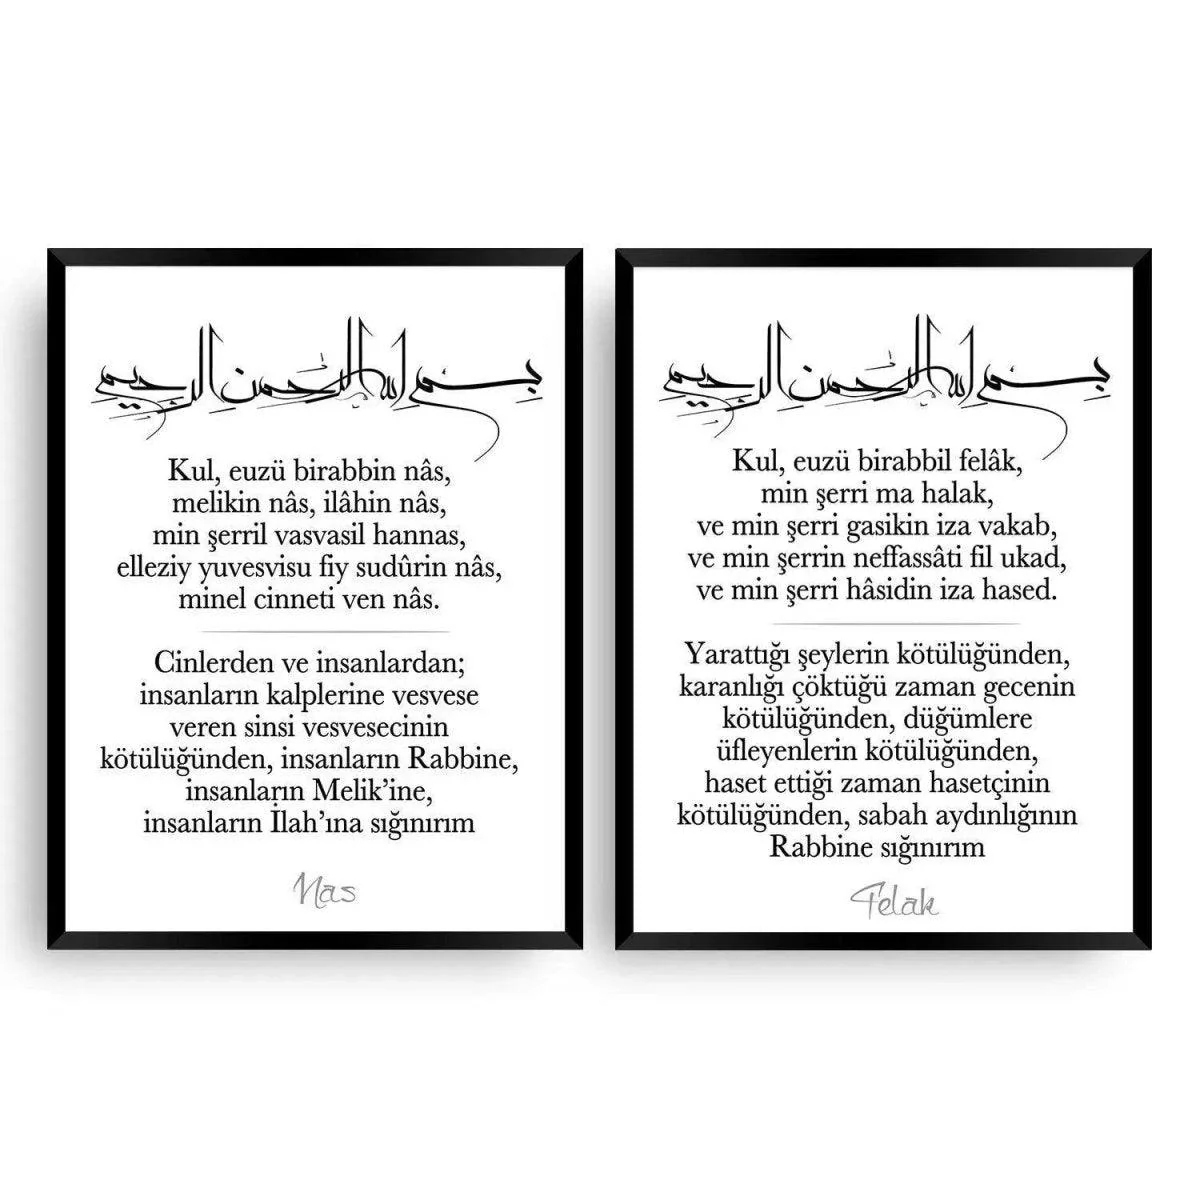 بسم الله الرحمن الرحيم
Kul, euzü birabbin nâs,
melikin nâs, ilâhin nâs,
min şerril vasvasil hannas,
elleziy yuvesvisu fiy sudûrin nâs,
minel cinneti ven nâs.
Cinlerden ve insanlardan;
insanların kalplerine vesvese
veren sinsi vesvesecinin
kötülüğünden, insanların Rabbine,
insanların Melik’ine,
insanların İlah’ına sığınırım
Nas
بسم الله الرحمن الرحيم
Kul, euzü birabbil felâk,
min şerri ma halak,
ve min şerri gasikin iza vakab,
ve min şerrin neffassâti fil ukad,
ve min şerri hâsidin iza hased.
Yarattığı şeylerin kötülüğünden,
karanlığı çöktüğü zaman gecenin
kötülüğünden, düğümlere
üfleyenlerin kötülüğünden,
haset ettiği zaman hasetçinin
kötülüğünden, sabah aydınlığının
Rabbine sığınırım
Felak